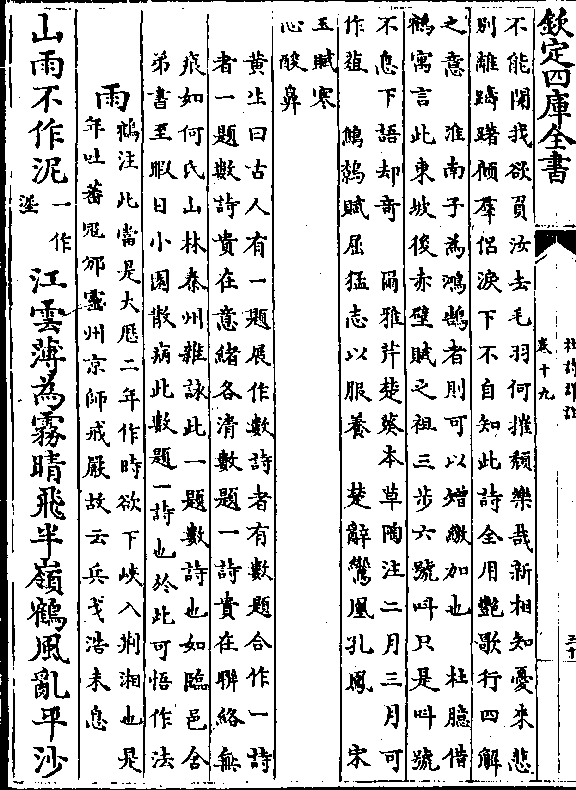 欽定四庫全書
杜詩詳註
卷十九
三十
不能開我欲負汝去毛羽何摧頹樂哉新相知憂來悲
别離躊躇顧羣侶淚下不自知此詩全用艷歌行四解
之意　淮南子為鴻鵠者則可以矰繳加也　杜臆借
鶴寓言此東坡後赤壁賦之祖三步六號呌只是呌號
不息下語却奇　爾雅芹楚葵本草陶注二月三月可
作葅　鷦鷯賦屈猛志以服養　楚辭鸞凰孔鳳　宋
玉賦寒
心酸鼻
黄生曰古人有一題展作數詩者有數題合作一詩
者一題數詩貴在意緒各清數題一詩貴在聯絡無
痕如何氏山林秦州雜詠此一題數詩也如臨邑舍
弟書至暇日小園散病此數題一詩也於此可悟作法
雨
鶴注此當是大厯二年作時欲下峽入荆湘也是
年吐蕃冦邠靈州京師戒嚴故云兵戈浩未息
山雨不作泥一作溼江雲薄為霧晴飛半嶺鶴風亂平沙